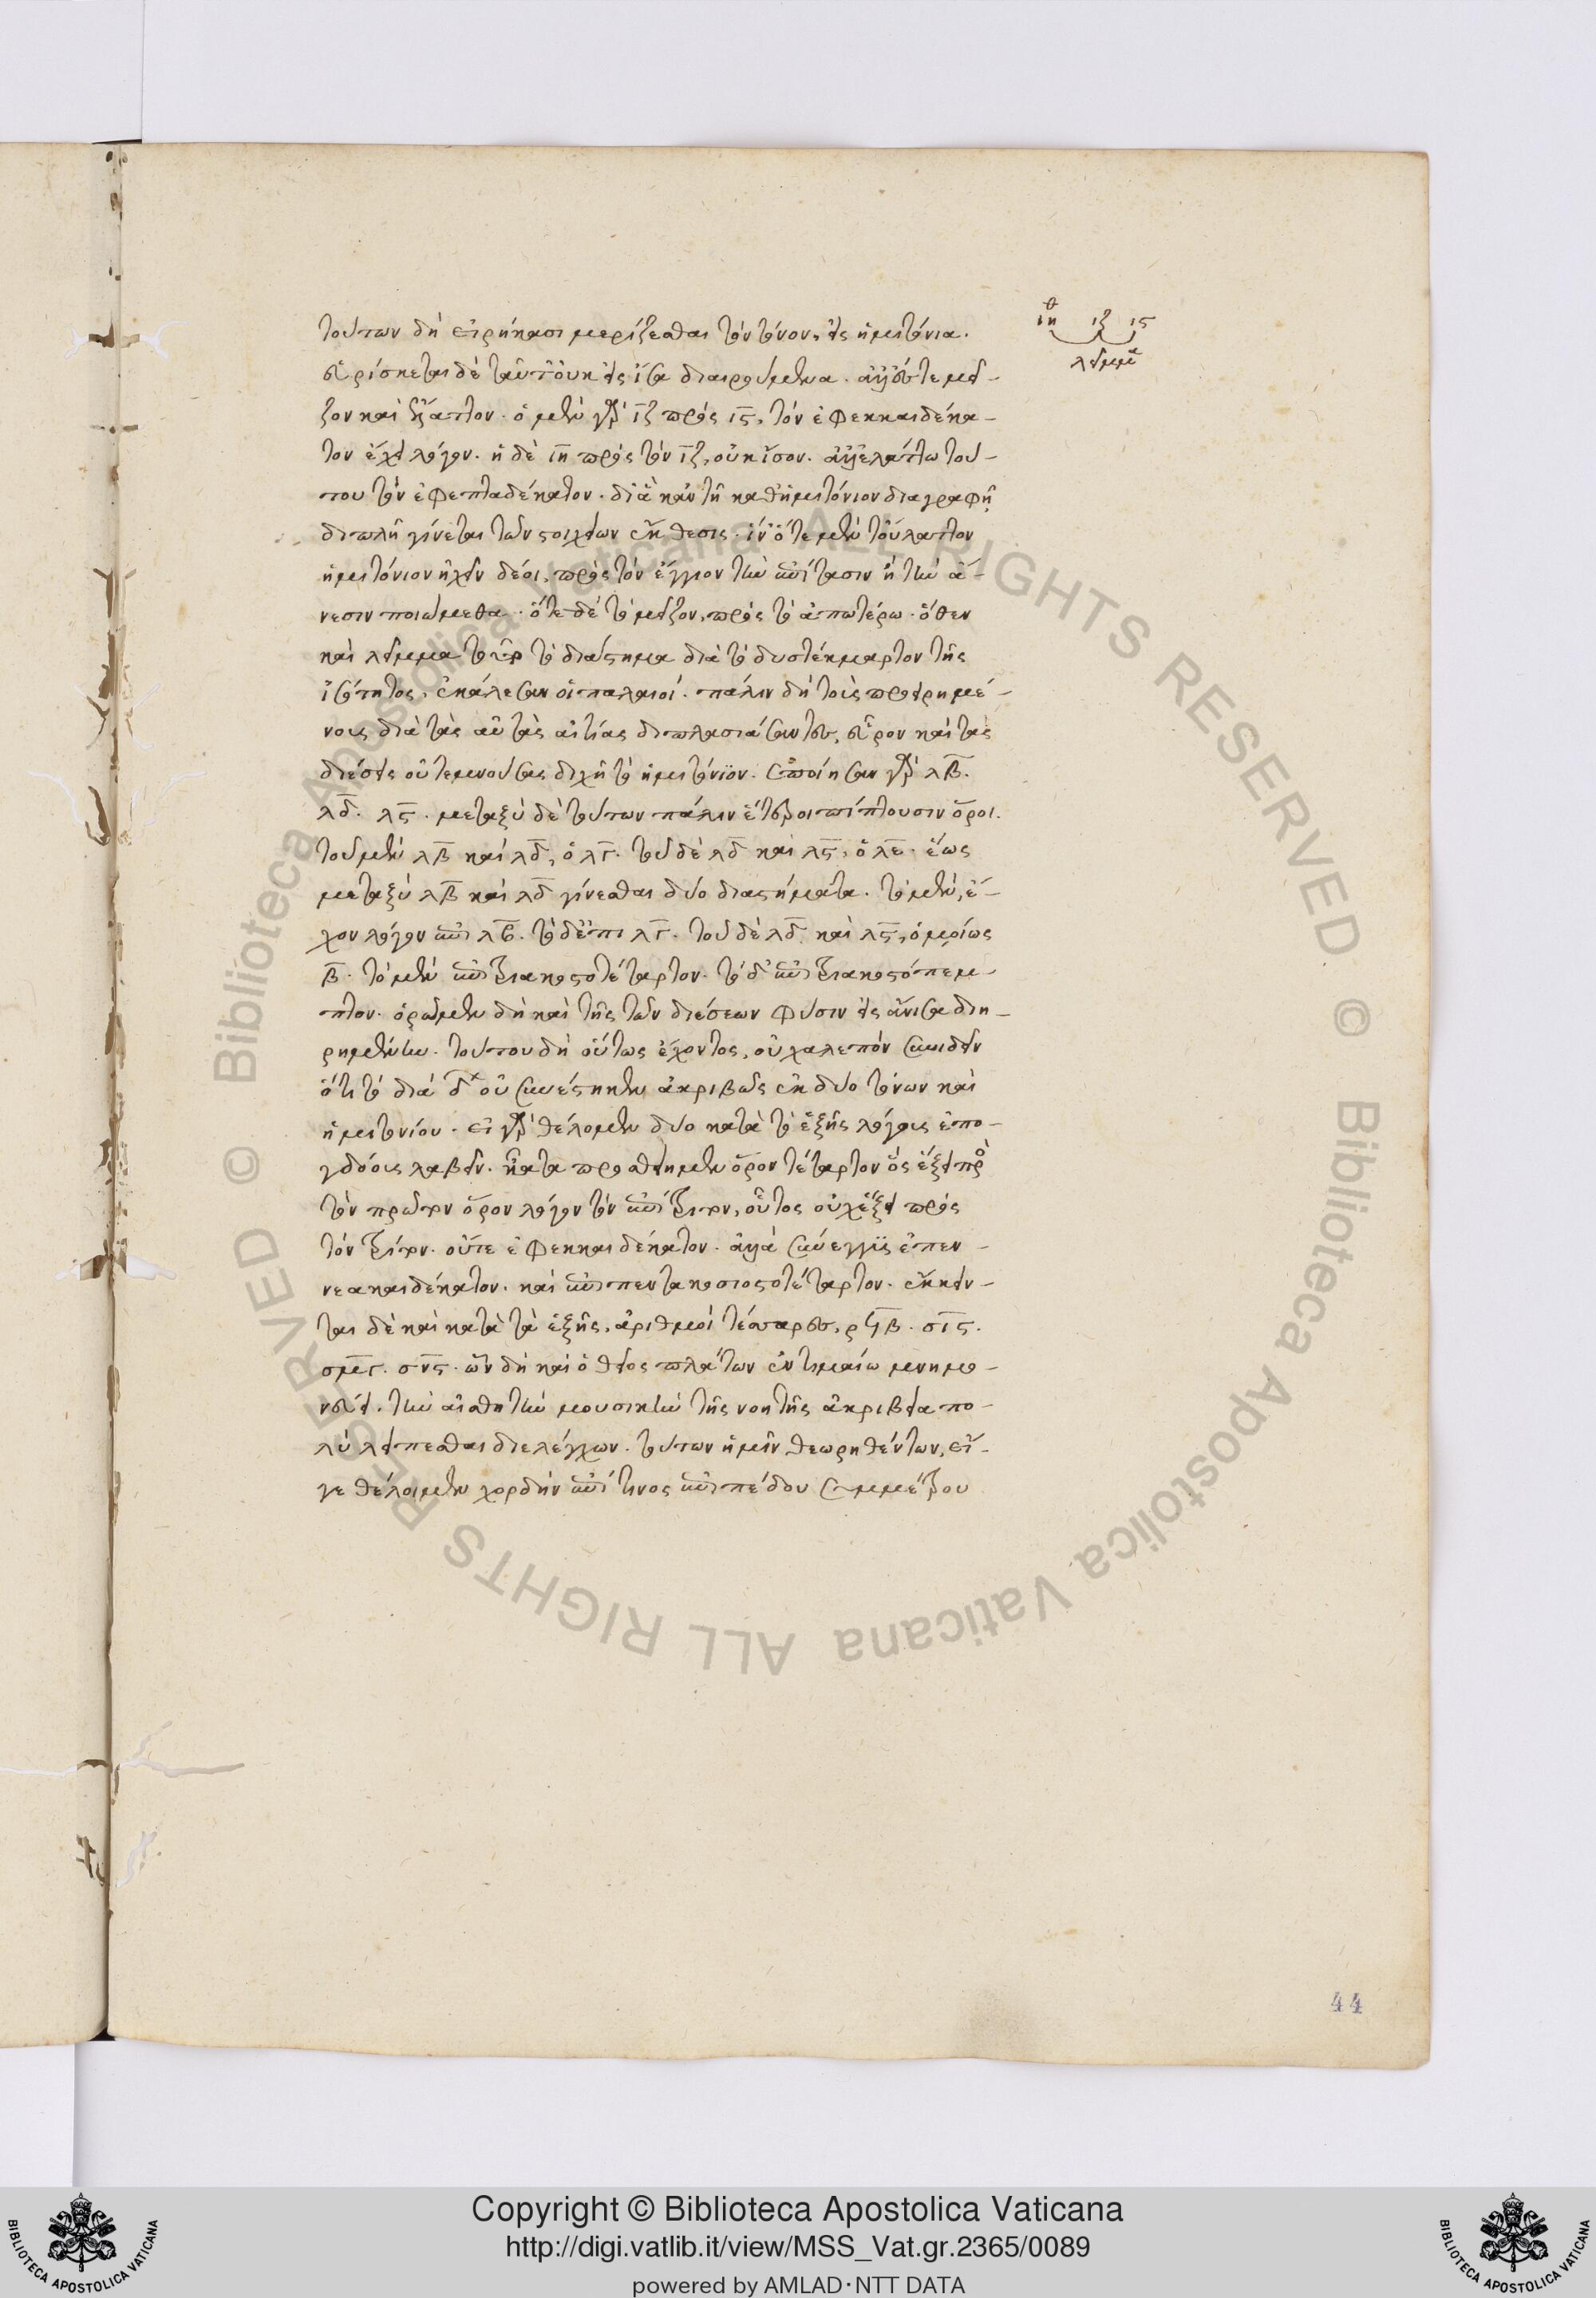 τούτων δὴ εἰρήκασι μερίζεσθαι τὸν τόνον, εἰς ἡμιτόνια.
εὑρίσκεται δὲ ταῦτ' οὐκ εἰς ἴσα διαιρούμενα. ἀλλ' εἴς τε μεῖ-
ζον καὶ ἔλαττον. ὁ μὲν γὰρ ιζ πρὸς ις, τὸν ἐφεκκαιδέκα-
τον ἔχει λόγον. ἡ δὲ ιη πρὸς τὸν ιζ, οὐκ ἴσον. ἀλλ' ἐλάττω τού-
του τὸν ἐφεπταδέκατον. δι' ἃ κἀν τῇ καθ' ἡμιτόνιον διαγραφῇ
διπλῆ γίνεται τῶν στοιχείων ἔκθεσις. ἵν' ὅτε μὲν τοὔλαττον
ἡμιτόνιον ἠχεῖν δέοι, πρὸς τὸν ἔγγιον τὴν ἐπίτασιν ἢ τὴν ἄ-
νεσιν ποιώμεθα. ὅτε δὲ τὸ μεῖζον, πρὸς τὸ ἀπωτέρω. ὅθεν
καὶ λεῖμμα τοῦτο τὸ διάστημα διὰ τὸ δυστέκμαρτον τῆς
ἰσότητος, ἐκάλεσαν οἱ παλαιοί. πάλιν δὴ τοὺς προειρημέ-
νους διὰ τὰς αὐτὰς αἰτίας διπλασιάσαντες, εὗρον καὶ τὰς
διέσεις οὐ τεμνούσας διχῆ τὸ ἡμιτόνιον. ἐποίησαν γὰρ λβ.
λδ. λς. μεταξὺ δὲ τούτων πάλιν ἕτεροι πίπτουσιν ὅροι.
τοῦ μὲν λβ καὶ λδ, ὁ λγ. τοῦ δὲ λδ καὶ λς, ὁ λε. ἕως
μεταξὺ λβ καὶ λδ γίνεσθαι δύο διαστήματα. τὸ μὲν, ἔ-
χον λόγον ἐπὶ λβ. τὸ δ' ἔπι λγ. τοῦ δὲ λδ καὶ λς, ὁμοίως
β. τὸ μὲν ἐπιτριακοστοτέταρτον. τὸ δ' ἐπιτριακοστόπεμ-
πτον. ὁρῶμεν δὴ καὶ τῆς τῶν διέσεων φύσιν εἰς ἄνισα διη-
ρημένην. τούτου δὴ οὕτως ἔχοντος, οὐ χαλεπὸν συνιδεῖν
ὅτι τὸ διὰ δ οὐ συνέστηκεν ἀκριβῶς ἐκ δύο τόνων καὶ
ἡμιτονίου. εἰ γὰρ θέλομεν δύο κατὰ τὸ ἑξῆς λόγους ἐπο-
γδόους λαβεῖν. κᾆτα προσθήκμεν ὅρον τέταρτον ὃς ἕξει πρὸς
τὸν πρῶτον ὅρον λόγον τὸν ἐπίτριτον, οὗτος οὐχ ἕξει πρὸς
τὸν τρίτον. οὔτε ἐφεκκαιδέκατον. ἀλλὰ σύνεγγυς ἐπεν-
νεακαιδέκατον. καὶ ἐπιπεντακοσιοστοτέταρτον. ἔκκειν-
ται δὲ καὶ κατὰ τὰ ἑξῆς, ἀριθμοὶ τέσσαρες, ρϟβ. σις.
σμγ. σνς. ὧν δὴ καὶ ὁ θεῖος πλάτων ἐν τιμαίῳ μνημο-
νεύει. τὴν αἰσθητὴν μουσικὴν τῆς νοητῆς ἀκριβείᾳ πο-
λὺ λείπεσθαι διελέγχων. τούτων ἡμῖν θεωρηθέντων, εἴ-
γε θέλοιμεν χορδὴν ἐπί τινος ἐπιπέδου συμμέτρου
θ
ιη ιζ ις
λεῖμμα
44
Copyright © Biblioteca Apostolica Vaticana
http://digi.vatlib.it/view/MSS_Vat.gr.2365/0089
powered by AMLAD·NTT DATA
BIBLIOTECA APOSTOLICA VATICANA
BIBLIOTECA APOSTOLICA VATICANA
© Biblioteca Apostolica Vaticana ALL RIGHTS RESERVED
© Biblioteca Apostolica Vaticana ALL RIGHTS RESERVED